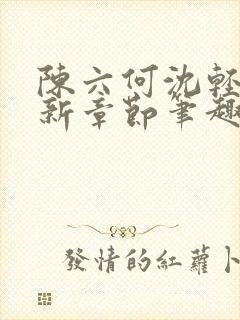 陳六何沈輕
新章節筆趣
發情的紅蘿卜